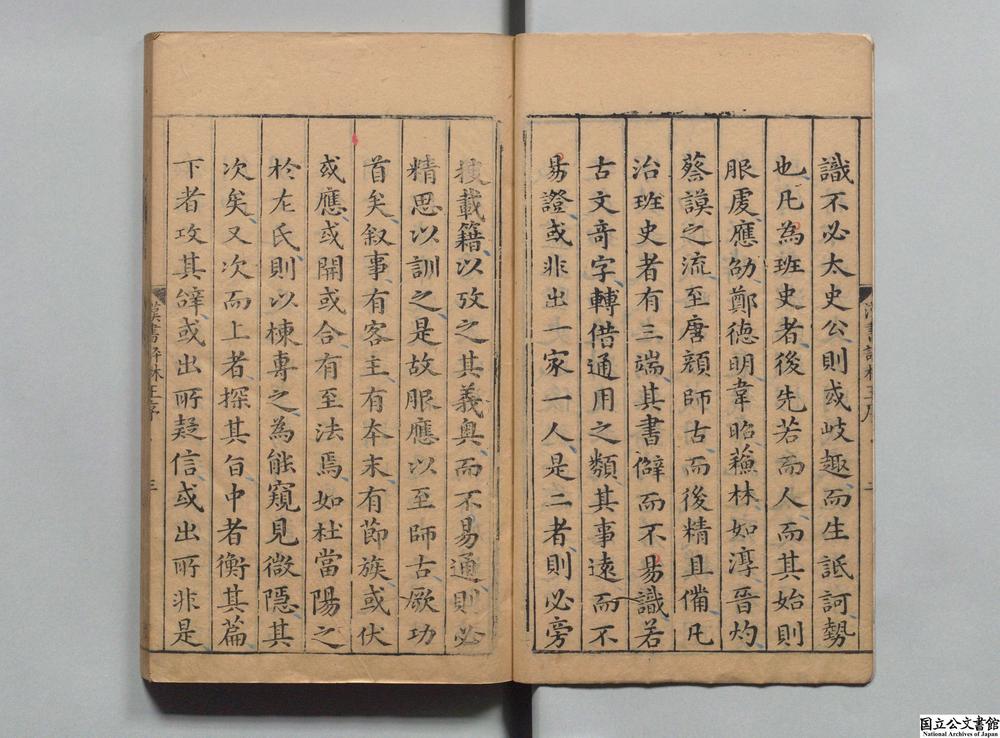 識不必太史公則或岐趣而生詆訶勢
也凡為班史者後先若而人而其始則
服虔應劭鄭德明韋昭蘓林如淳晉灼
蔡謨之流至唐顔師古而後精且備凡
治班史者有三端其書僻而不易識若
古文竒字轉借通用之𩔖其事逺而不
易證或非出一家一人是二者則必旁
搜載籍以攷之其義奥而不易通則必
精思以訓之是故服應以至師古厥功
首矣叙事有客主有本末有節族或伏
或應或開或合有至法焉如杜當陽之
於左氏則以棟専之為能窺見微隱其
次矣又次而上者探其㫖中者衡其篇
下者攻其辭或出所疑信或出所非是
漢書評林王序
二
漢書評林王序
三
国立公文書館
National Archives of Japan